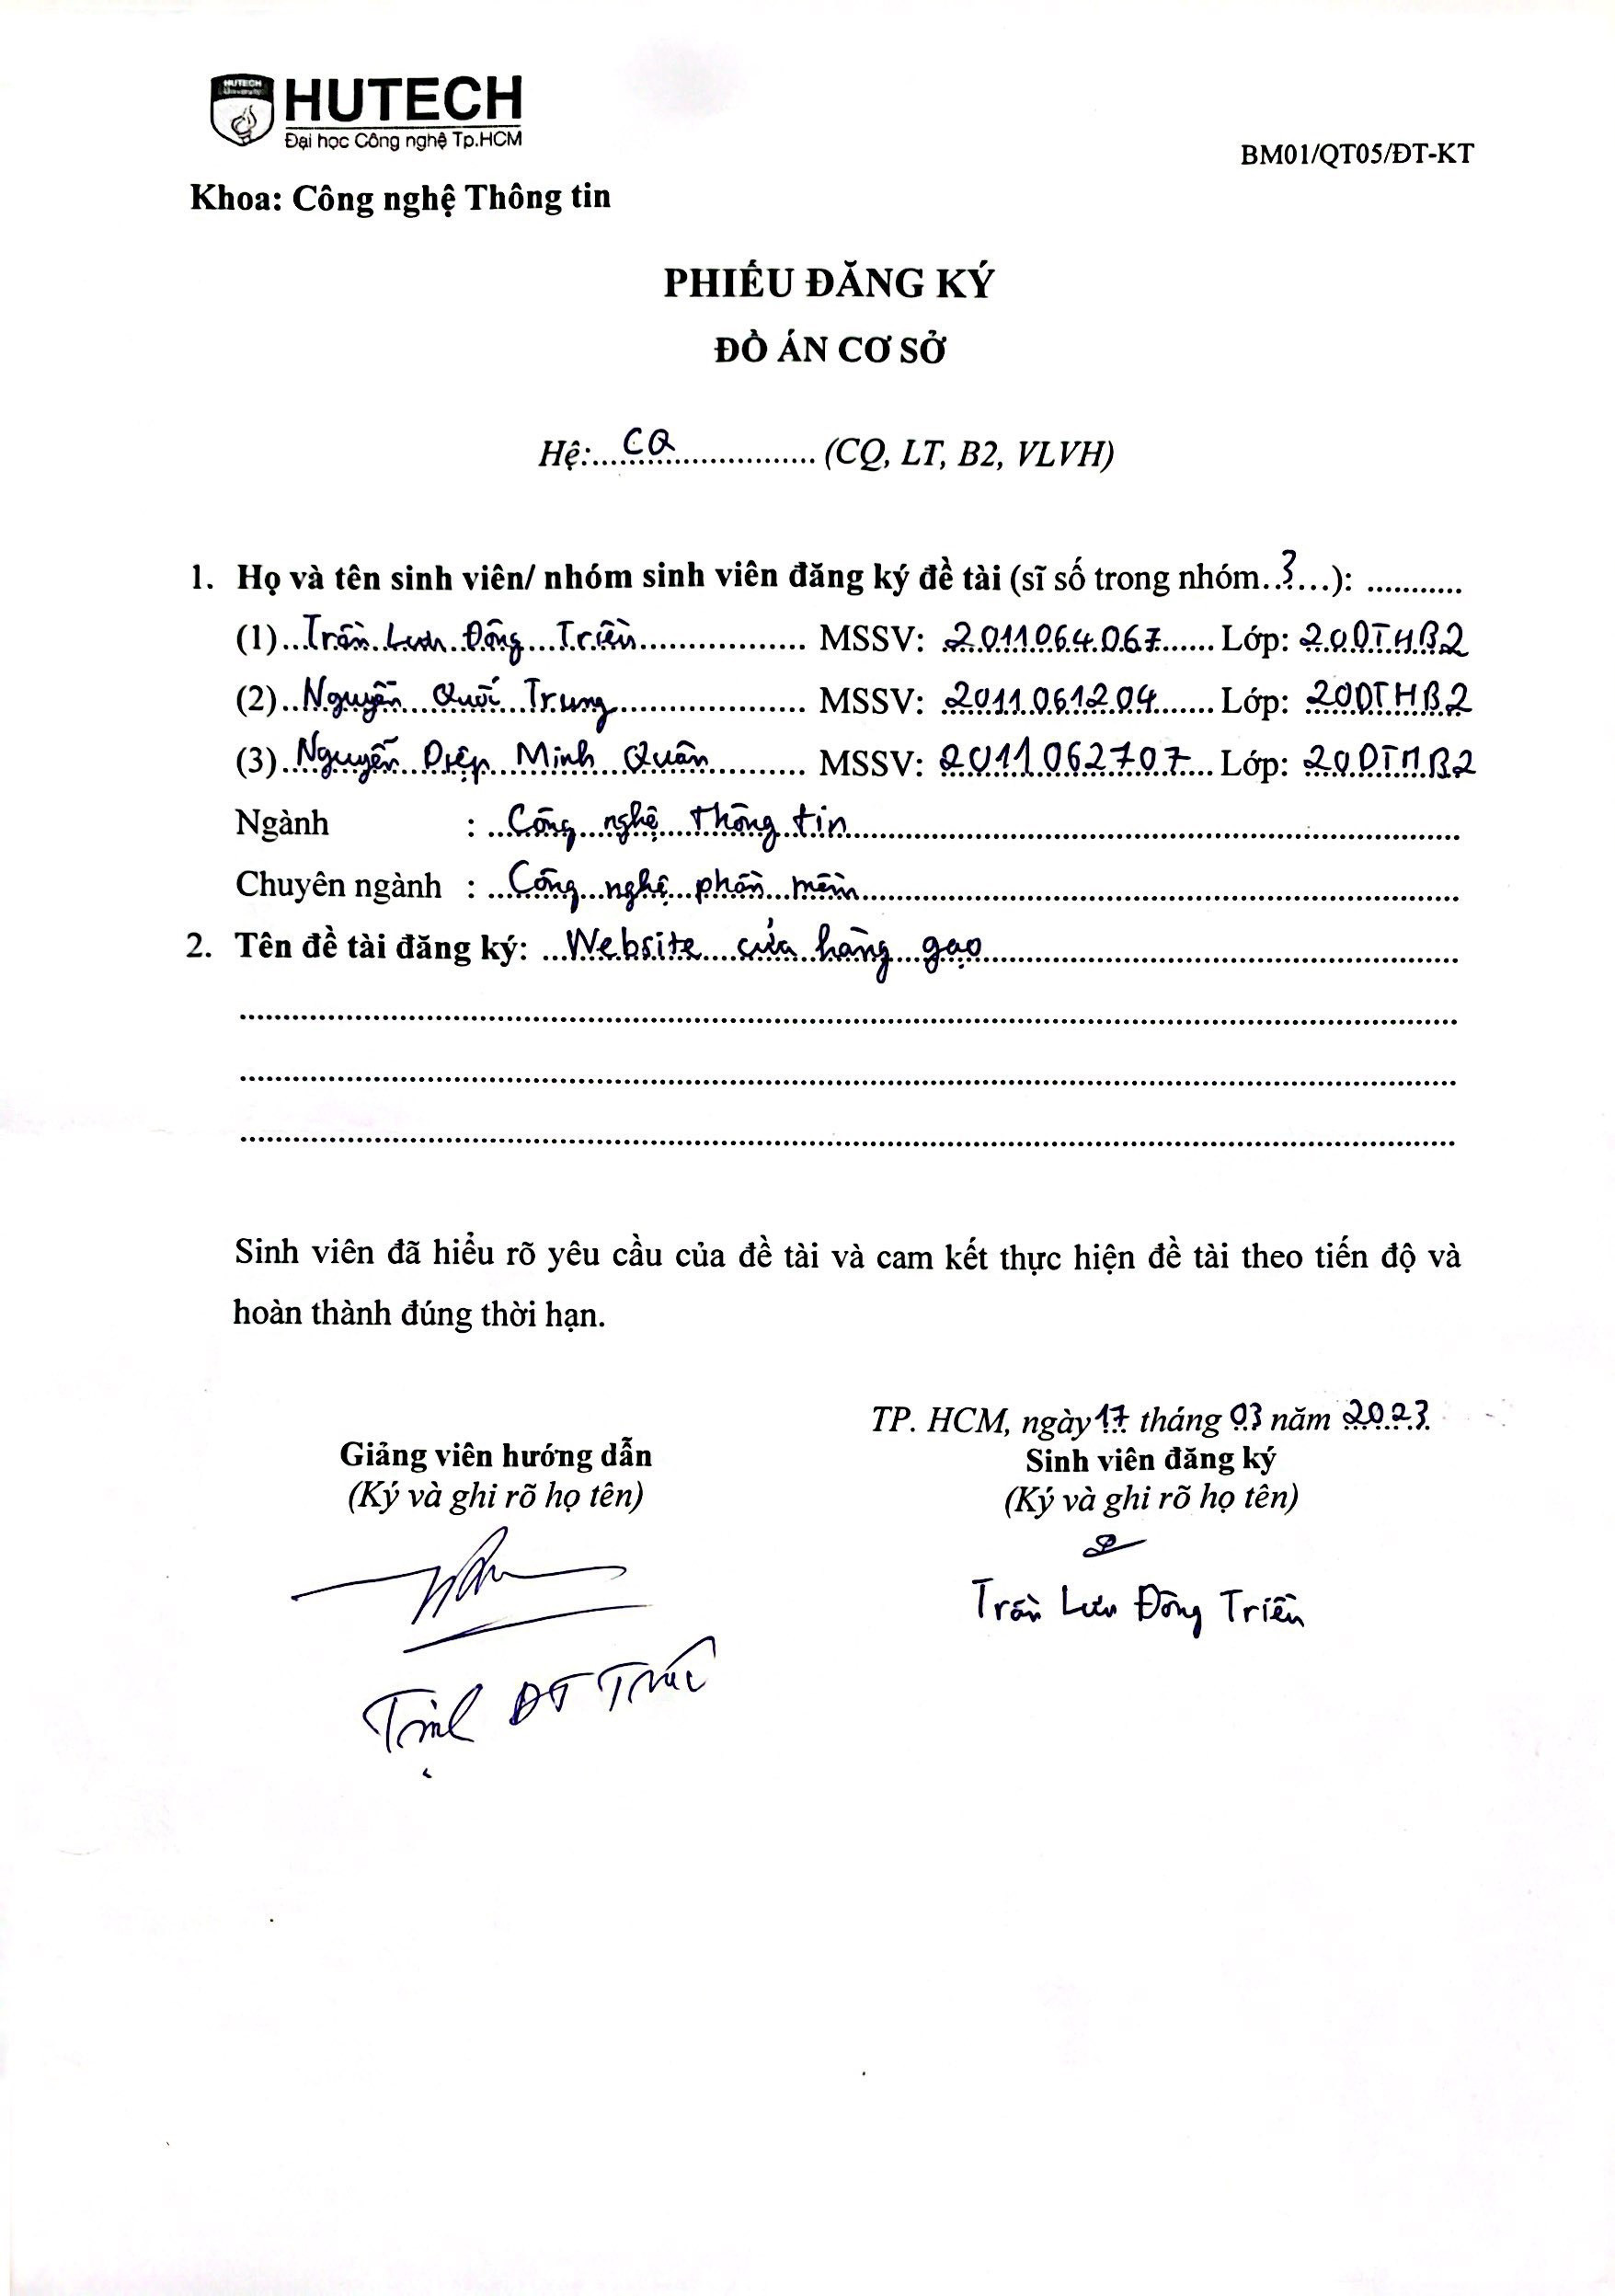 HUTECH University
HUTECH
Đại học Công nghệ Tp.HCM
BM01/QT05/ĐT-KT
Khoa: Công nghệ Thông tin
PHIẾU ĐĂNG KÝ
ĐỒ ÁN CƠ SỞ
Hệ:....CQ.................... (CQ, LT, B2, VLVH)
1. Họ và tên sinh viên/ nhóm sinh viên đăng ký đề tài (sĩ số trong nhóm..3...): ...........
(1)...Trần Lưu Đông Triền.................. MSSV: 2011064067...... Lớp: 20DTHB2
(2)...Nguyễn Quốc Trung.................... MSSV: 2011061204...... Lớp: 20DTHB2
(3)...Nguyễn Diệp Minh Quân.......... MSSV: 2011062707.... Lớp: 20DTHB2
Ngành : ...Công nghệ thông tin..............................
Chuyên ngành : ...Công nghệ phần mềm..............................
2. Tên đề tài đăng ký: ...Website cửa hàng gạo..............................
Sinh viên đã hiểu rõ yêu cầu của đề tài và cam kết thực hiện đề tài theo tiến độ và
hoàn thành đúng thời hạn.
TP. HCM, ngày 17 tháng 03 năm 2023
Giảng viên hướng dẫn
Sinh viên đăng ký
(Ký và ghi rõ họ tên)
(Ký và ghi rõ họ tên)
Trần Lưu Đông Triền